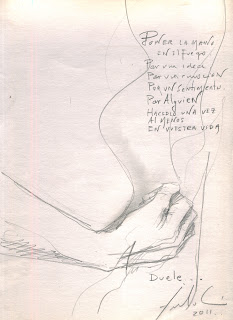 PONER LA MANO
EN EL FUEGO
POR UN IDEA
POR UNA EMOCION
POR UN SENTIMIENTO
POR ALGUIEN
HACEDLO UNA VEZ
AL MENOS
EN VUESTRA VIDA
Duele...
2011